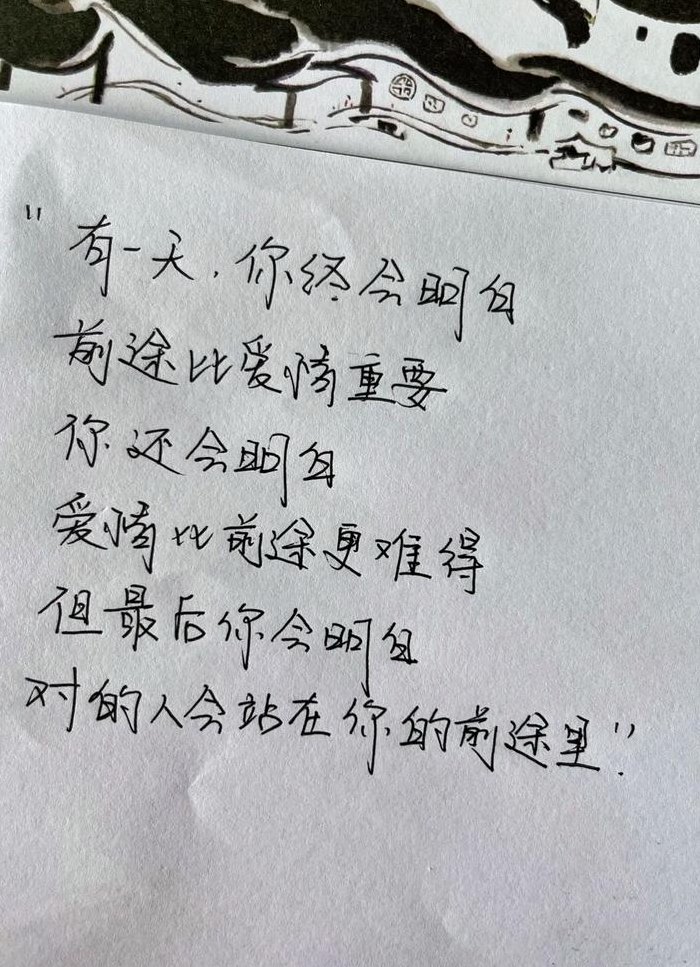 "有一天，你终会明白
前途比爱情重要
你还会明白
爱情比前途更难得
但最后你会明白
对的人会站在你的前途里."